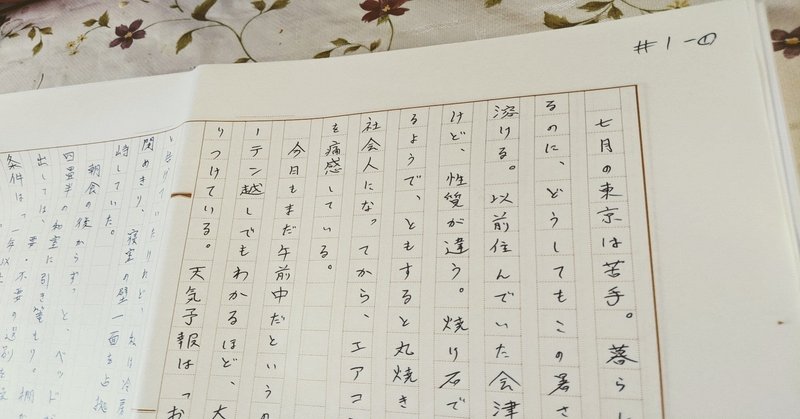 #1-①
七月の東京は苦手。暮ら
るのに、どうしてもこの暑さ
溶ける。以前住んでいた会津
けど、性質が違う。焼け石で
るようで、ともすると丸焼き
社会人になってから、エアコ
を痛感している。
今日もまだ午前中だというの
ーテン越しでもわかるほど、太
りつけている。天気予報は「お
と告げていたけれど、私は冷房
閉めきり、寝室の壁一面を占拠
峙していた。
朝食の後からずっと、ベッドが
四畳半の和室に引き篭もり。棚
出しては、要・不要の選別を
条件は「一年以